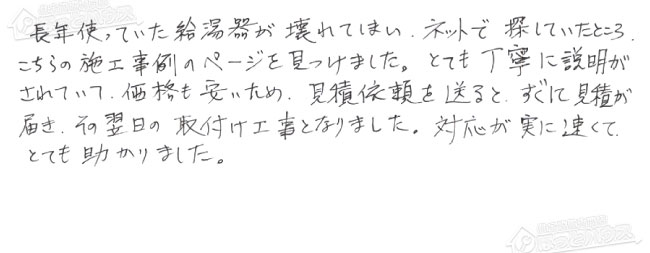 長年使っていた給湯器が壊れてしまい、ネットで探していたところ、
こちらの施工事例のページを見つけました。とても丁寧に説明が
されていて、価格も安いため、見積依頼を送ると、すぐに見積が
届き、その翌日の取付け工事となりました。対応が実に速くて、
とても助かりました。